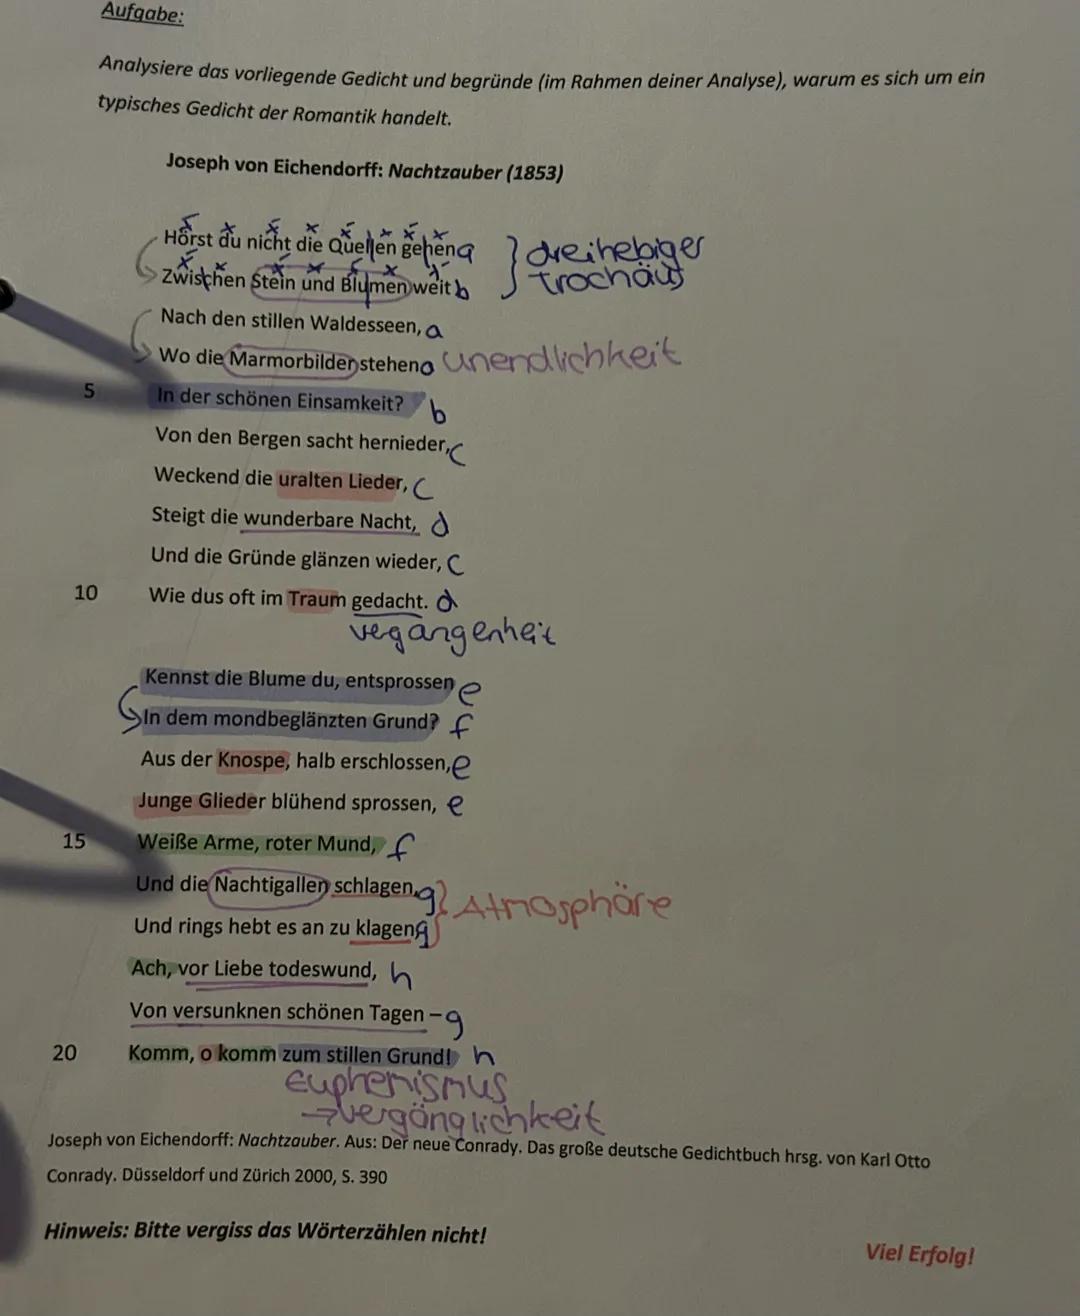 Aufgabe:
Analysiere das vorliegende Gedicht und begründe (im Rahmen deiner Analyse), warum es sich um ein
typisches Gedicht der Romantik handelt.
Joseph von Eichendorff: Nachtzauber (1853)
Hörst du nicht die Quellen gehen a
Zwischen Stein und Blumen weit b
} dreihebiger
trochäus
Nach den stillen Waldesseen, a
Wo die Marmorbilder stehen a unendlichkeit
5 In der schönen Einsamkeit? b
Von den Bergen sacht hernieder, c
Weckend die uralten Lieder, c
Steigt die wunderbare Nacht, d
Und die Gründe glänzen wieder, c
10 Wie dus oft im Traum gedacht. d
vergangenheit
Kennst die Blume du, entsprossen e
In dem mondbeglänzten Grund? f
Aus der Knospe, halb erschlossen, e
Junge Glieder blühend sprossen, e
15 Weiße Arme, roter Mund, f
Und die Nachtigallen schlagen, g } Atmosphäre
Und rings hebt es an zu klagen, g
Ach, vor Liebe todeswund, h
Von versunknen schönen Tagen – g
20 Komm, o komm zum stillen Grund! h
Euphemismus
→ vergänglichkeit
Joseph von Eichendorff: Nachtzauber. Aus: Der neue Conrady. Das große deutsche Gedichtbuch hrsg. von Karl Otto
Conrady. Düsseldorf und Zürich 2000, S. 390
Hinweis: Bitte vergiss das Wörterzählen nicht!
Viel Erfolg!